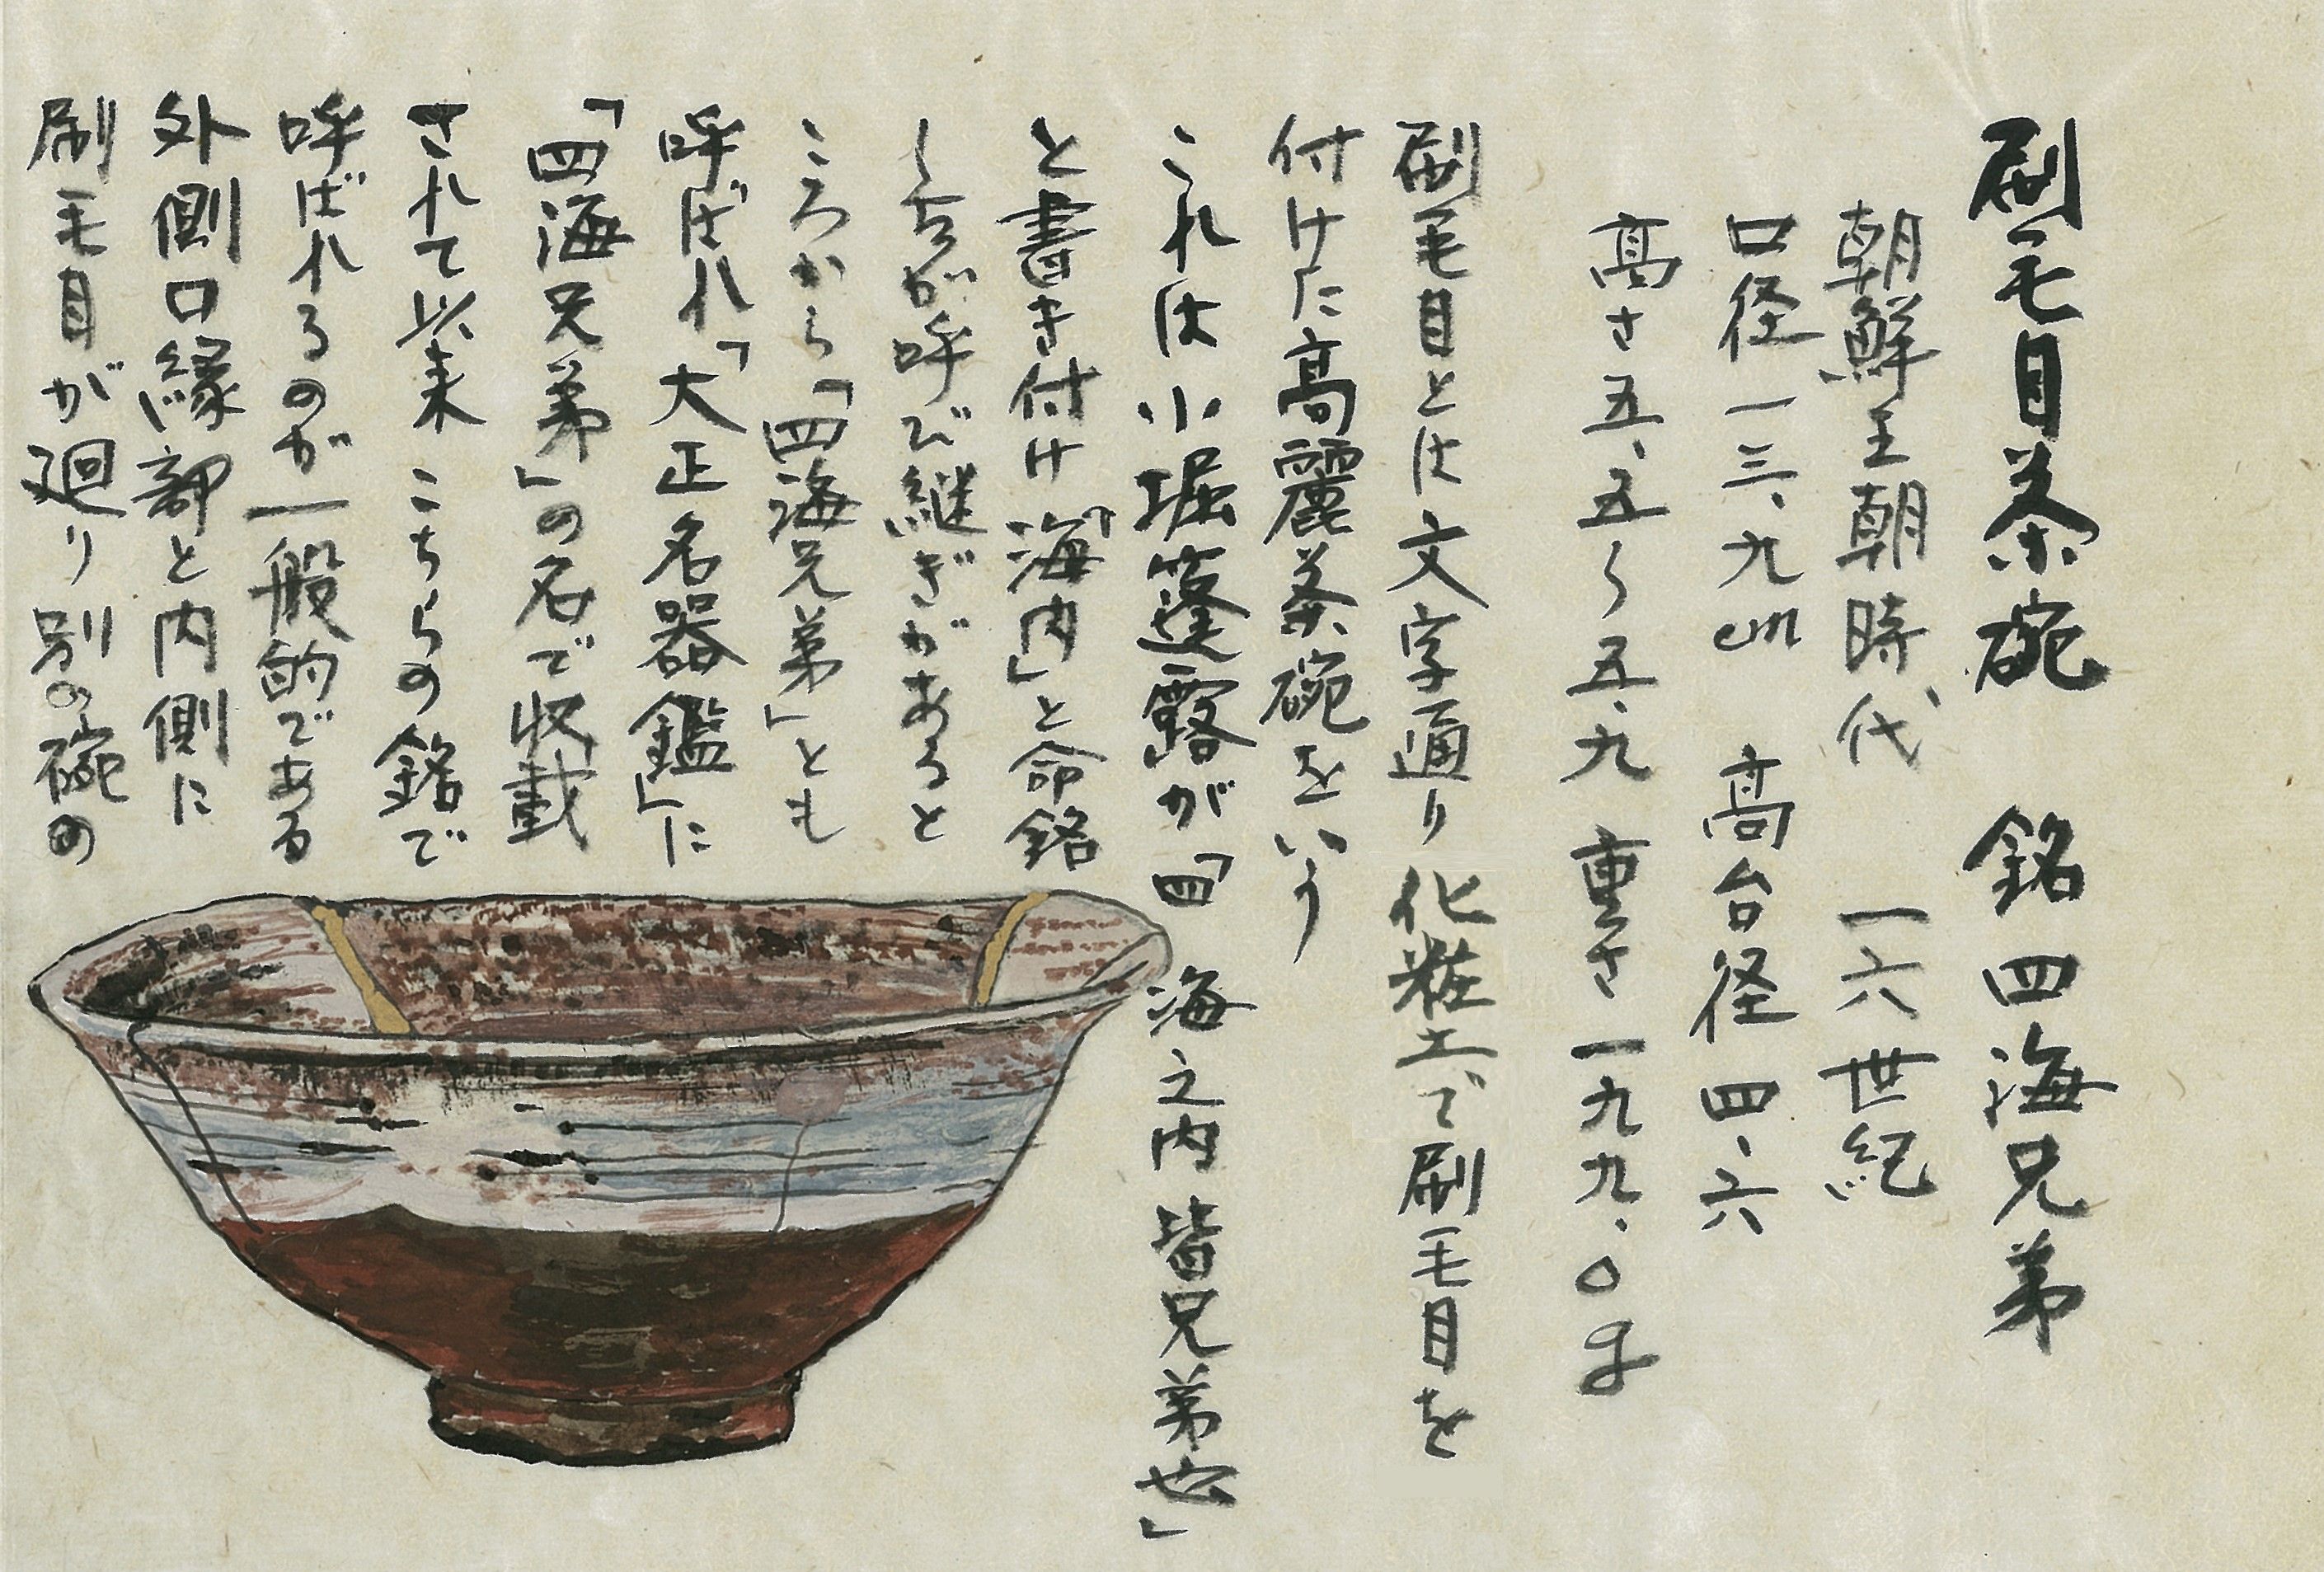 刷毛目茶碗　銘 四海兄弟
朝鮮王朝時代　一六世紀
口径一三、九cm　高台径四、六
高さ五、五〜五、九 重さ一九九、〇g
刷毛目とは文字通り化粧土で刷毛目を
付けた高麗茶碗をいう
これは小堀篷露が「四海之内皆兄弟也」
と書き付け「海内」と命銘
し
が呼び継ぎがあると
ころから「四海兄弟」とも
呼ばれ「大正名器鑑」に
「四海兄弟」の名で収載
されて以来こちらの銘で
呼ばれるのが一般的である
外側口縁部と内側に
刷毛目が廻り別の碗の